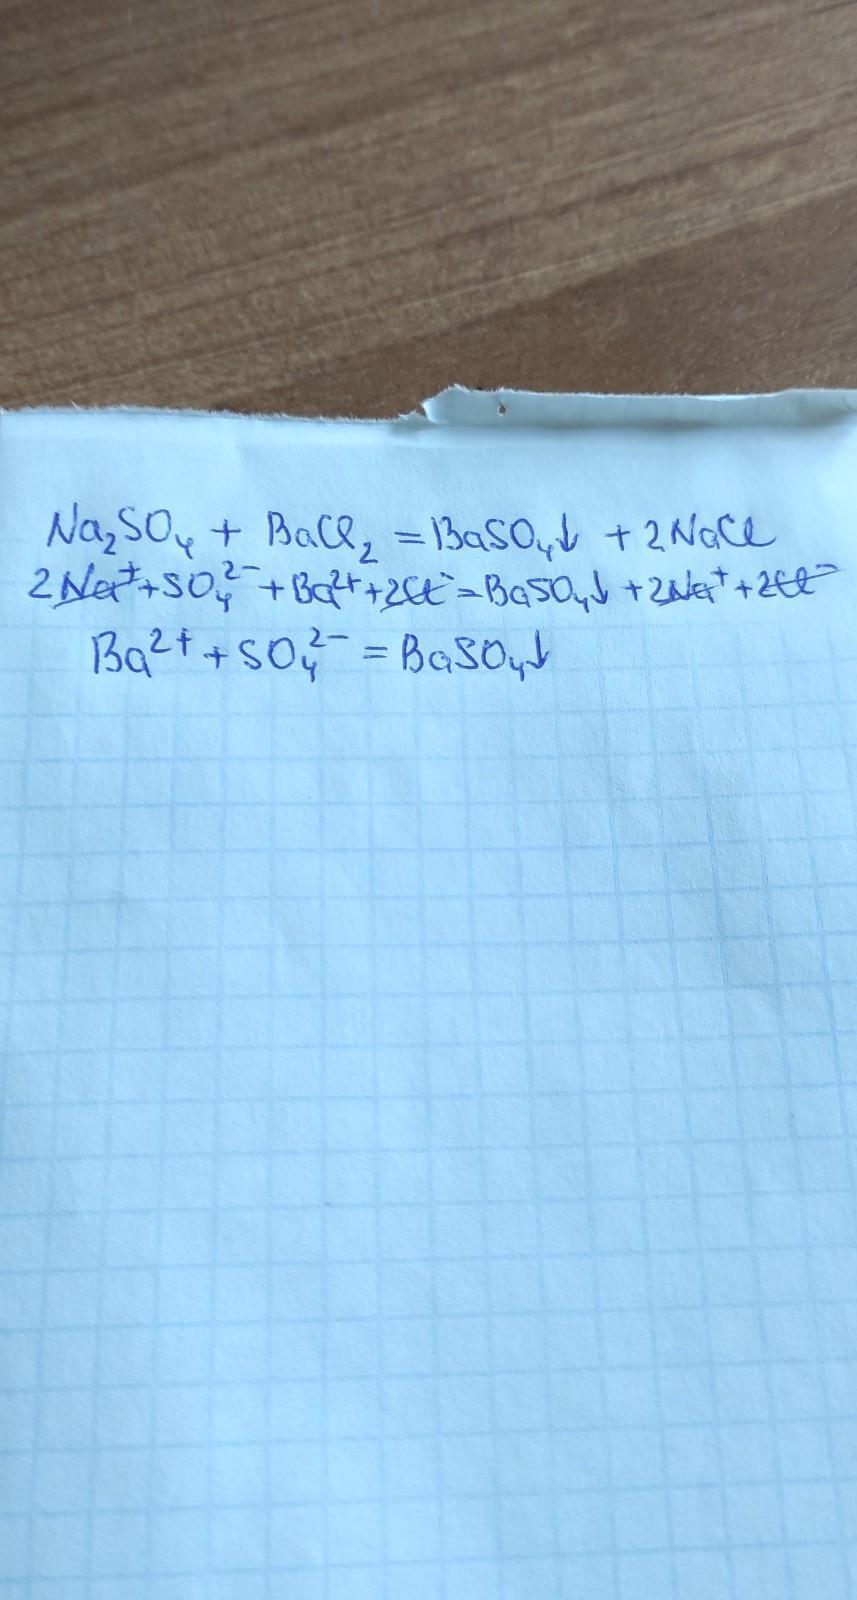 Na₂SO₄ + BaCl₂ = BaSO₄↓ + 2NaCl
2Na⁺ + SO₄²⁻ + Ba²⁺ + 2Cl⁻ = BaSO₄↓ + 2Na⁺ + 2Cl⁻
Ba²⁺ + SO₄²⁻ = BaSO₄↓